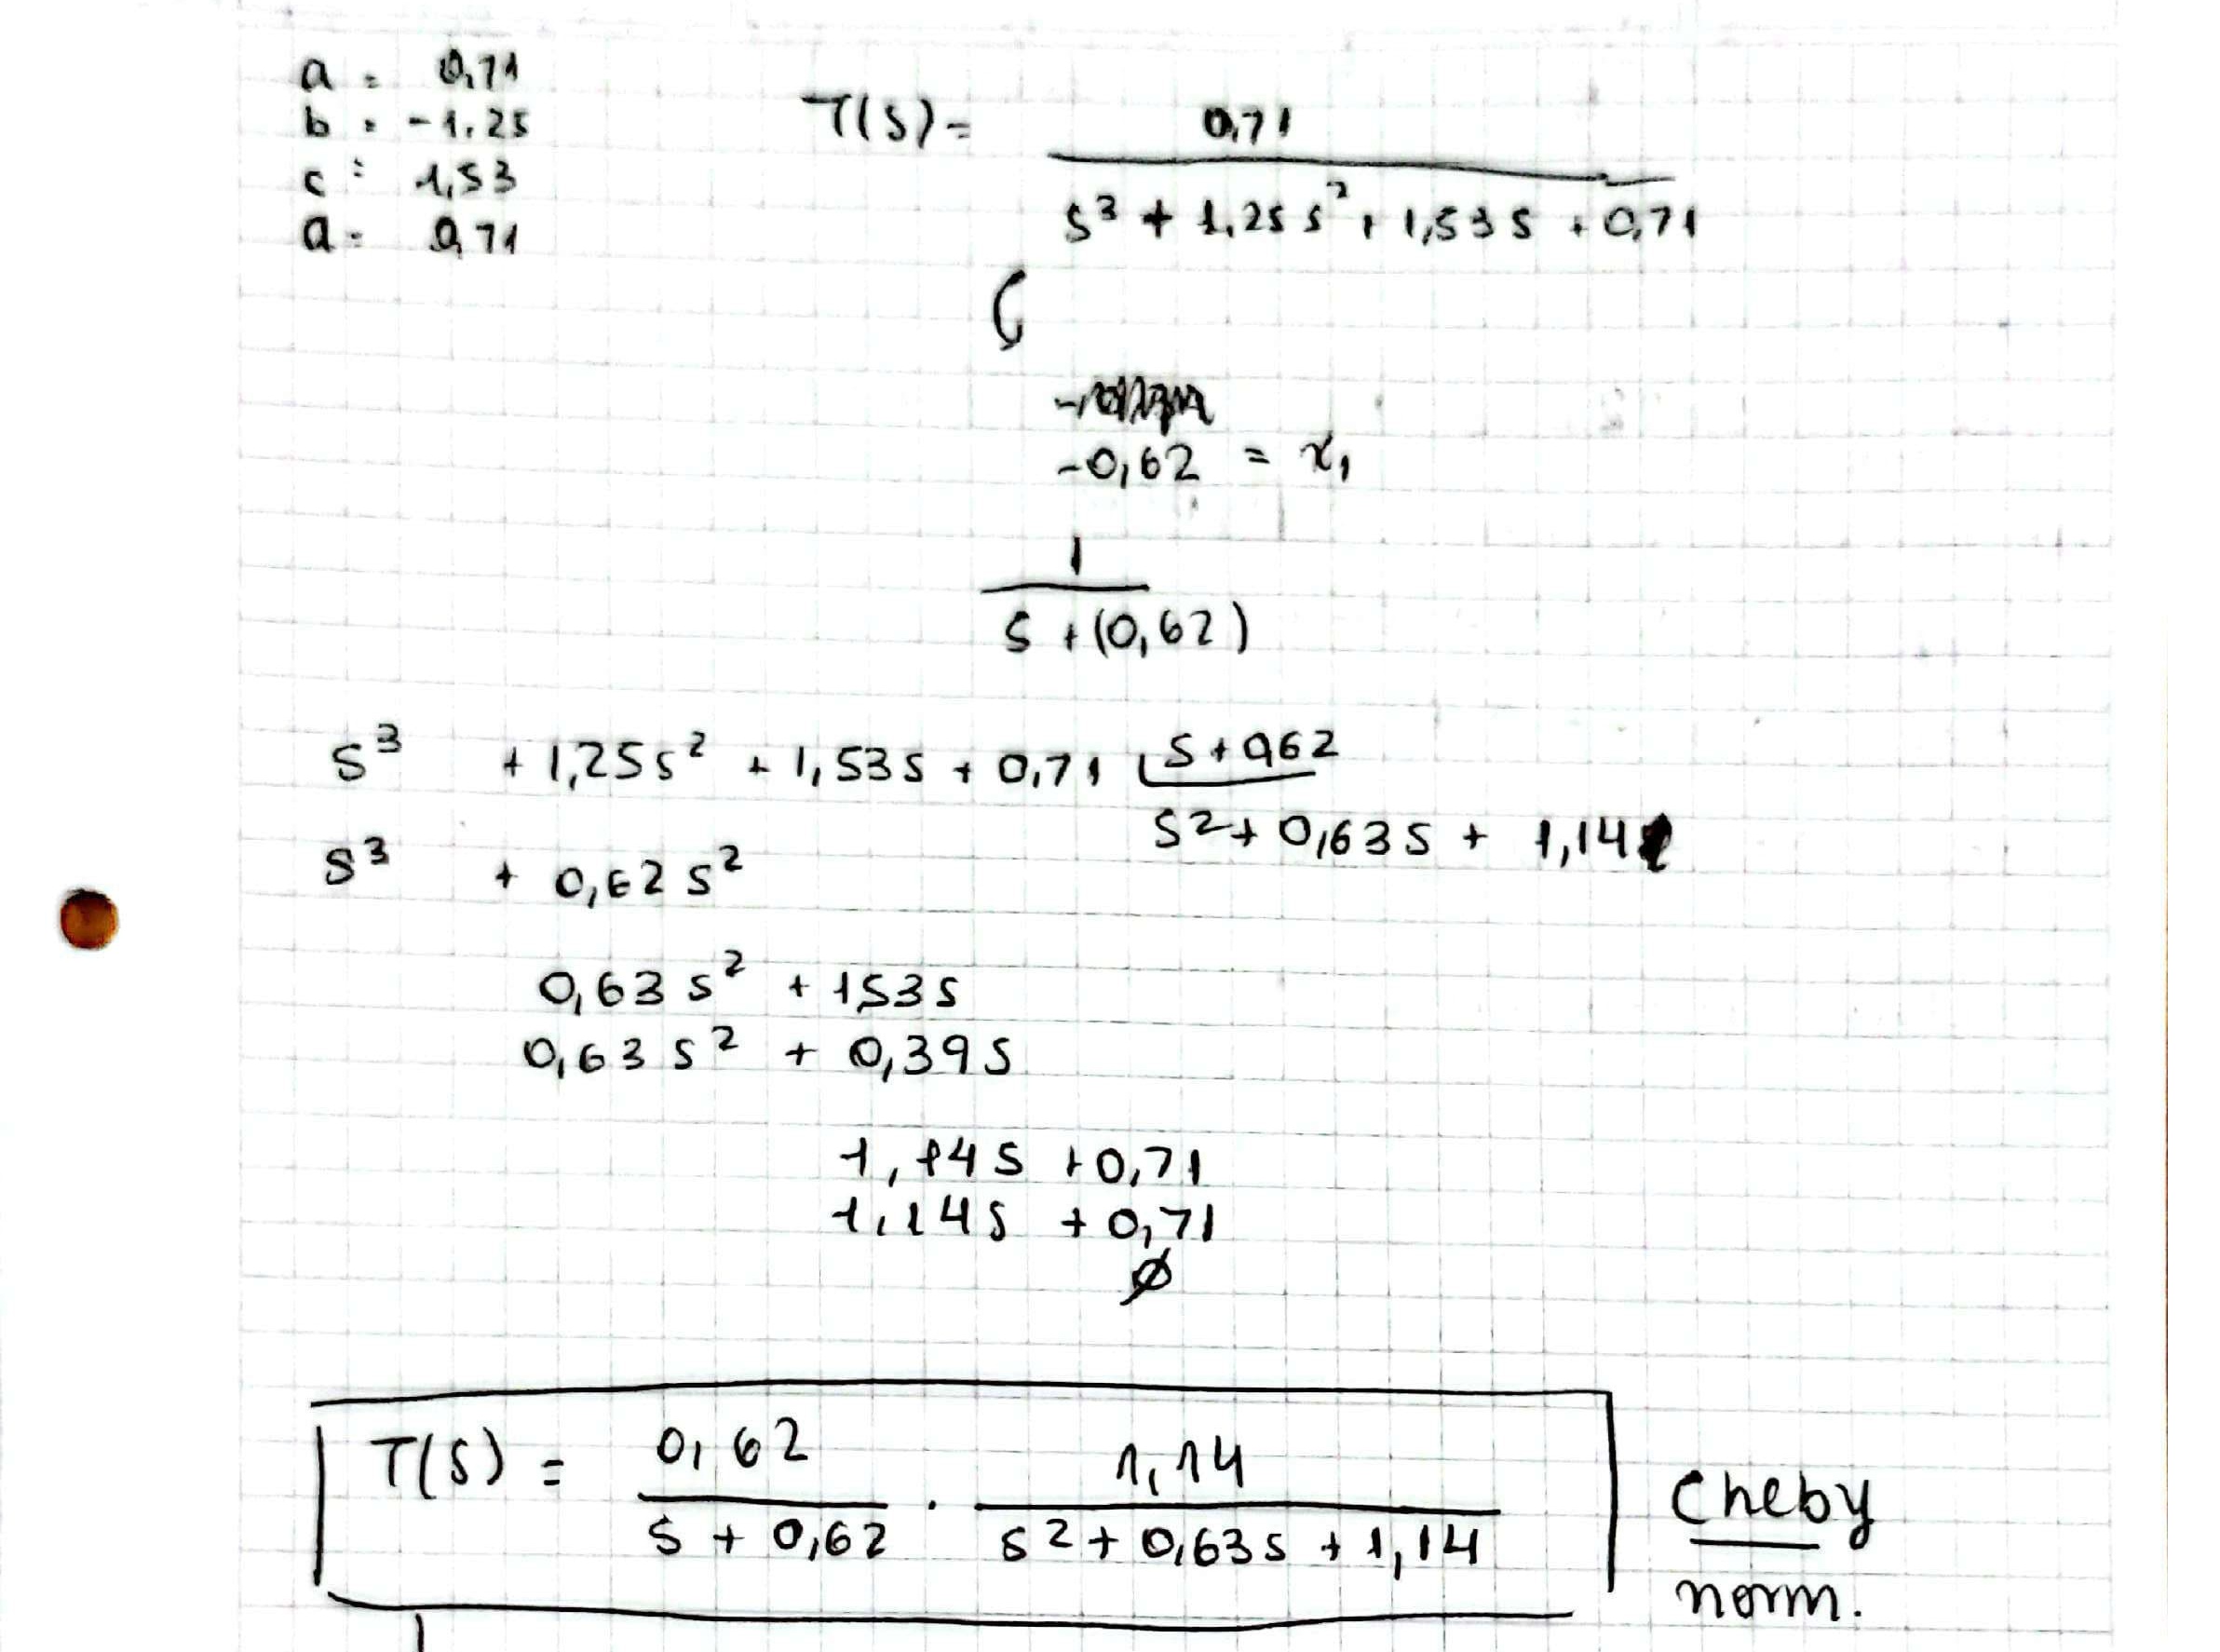 a = 0,71
b = -1,25
c = 1,53
a = 0,71
T(S) = 0,71 / s³ + 1,25 s² + 1,53 s + 0,71
-0,62 = x₁
1 / s + (0,62)
s³ + 1,25 s² + 1,53 s + 0,71 | s + 0,62
s² + 0,63 s + 1,14
s³ + 0,62 s²
0,63 s² + 1,53 s
0,63 s² + 0,39 s
1,14 s + 0,71
1,14 s + 0,71
∅
T(S) = 0,62 / s + 0,62 · 1,14 / s² + 0,63 s + 1,14
Cheby
norm.